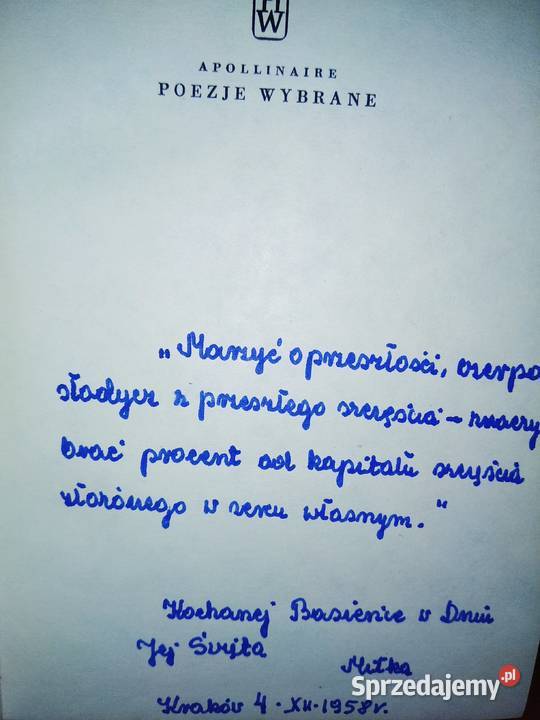 PIW
APOLLINAIRE
POEZJE WYBRANE
„Marzyć o przeszłości, czerpa
słodycz z przeszłego szczęścia – znaczy
brać procent od kapitału szczęścia
złożonego w sercu własnym."
Kochanej Basieńce w Dniu
Jej Święta
Mitka
Kraków 4 - XII - 1958 r.
Sprzedajemy.pl